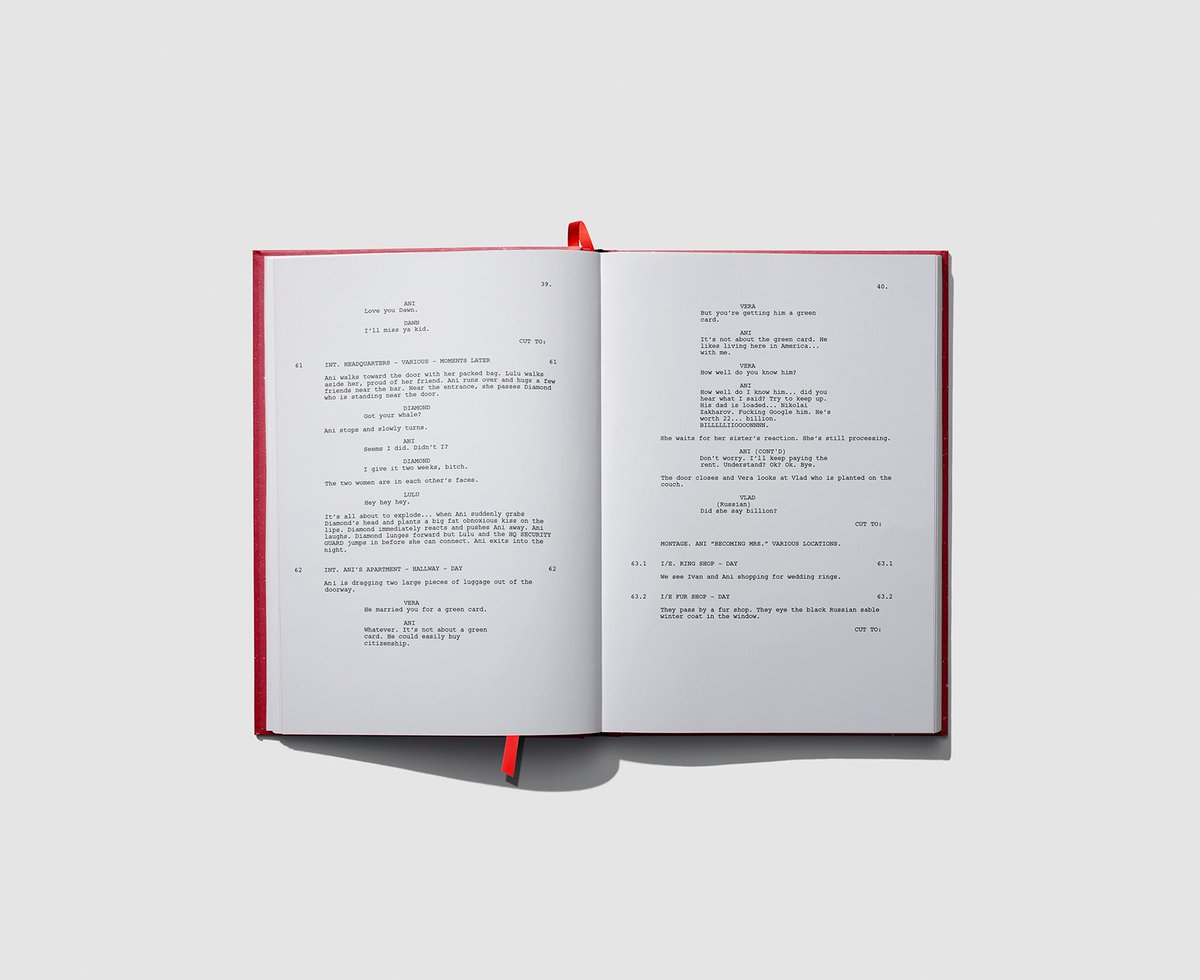 39.
ANI
Love you Dawn.
DAWN
I'll miss ya kid.
CUT TO:
61 INT. HEADQUARTERS - VARIOUS - MOMENTS LATER 61
Ani walks toward the door with her packed bag. Lulu walks
aside her, proud of her friend. Ani runs over and hugs a few
friends near the bar. Near the entrance, she passes Diamond
who is standing near the door.
DIAMOND
Got your whale?
Ani stops and slowly turns.
ANI
Seems I did. Didn't I?
DIAMOND
I give it two weeks, bitch.
The two women are in each other's faces.
LULU
Hey hey hey.
It's all about to explode... when Ani suddenly grabs
Diamond's head and plants a big fat obnoxious kiss on the
lips. Diamond immediately reacts and pushes Ani away. Ani
laughs. Diamond lunges forward but Lulu and the HQ SECURITY
GUARD jumps in before she can connect. Ani exits into the
night.
62 INT. ANI'S APARTMENT - HALLWAY - DAY 62
Ani is dragging two large pieces of luggage out of the
doorway.
VERA
He married you for a green card.
ANI
Whatever. It's not about a green
card. He could easily buy
citizenship.
40.
VERA
But you're getting him a green
card.
ANI
It's not about the green card. He
likes living here in America...
with me.
VERA
How well do you know him?
ANI
How well do I know him... did you
hear what I said? Try to keep up.
His dad is loaded... Nikolai
Zakharov. Fucking Google him. He's
worth 22... billion.
BILLLLLIIOOOONNNN.
She waits for her sister's reaction. She's still processing.
ANI (CONT'D)
Don't worry. I'll keep paying the
rent. Understand? Ok? Ok. Bye.
The door closes and Vera looks at Vlad who is planted on the
couch.
VLAD
(Russian)
Did she say billion?
CUT TO:
MONTAGE. ANI "BECOMING MRS." VARIOUS LOCATIONS.
63.1 I/E. RING SHOP - DAY 63.1
We see Ivan and Ani shopping for wedding rings.
63.2 I/E FUR SHOP - DAY 63.2
They pass by a fur shop. They eye the black Russian sable
winter coat in the window.
CUT TO: